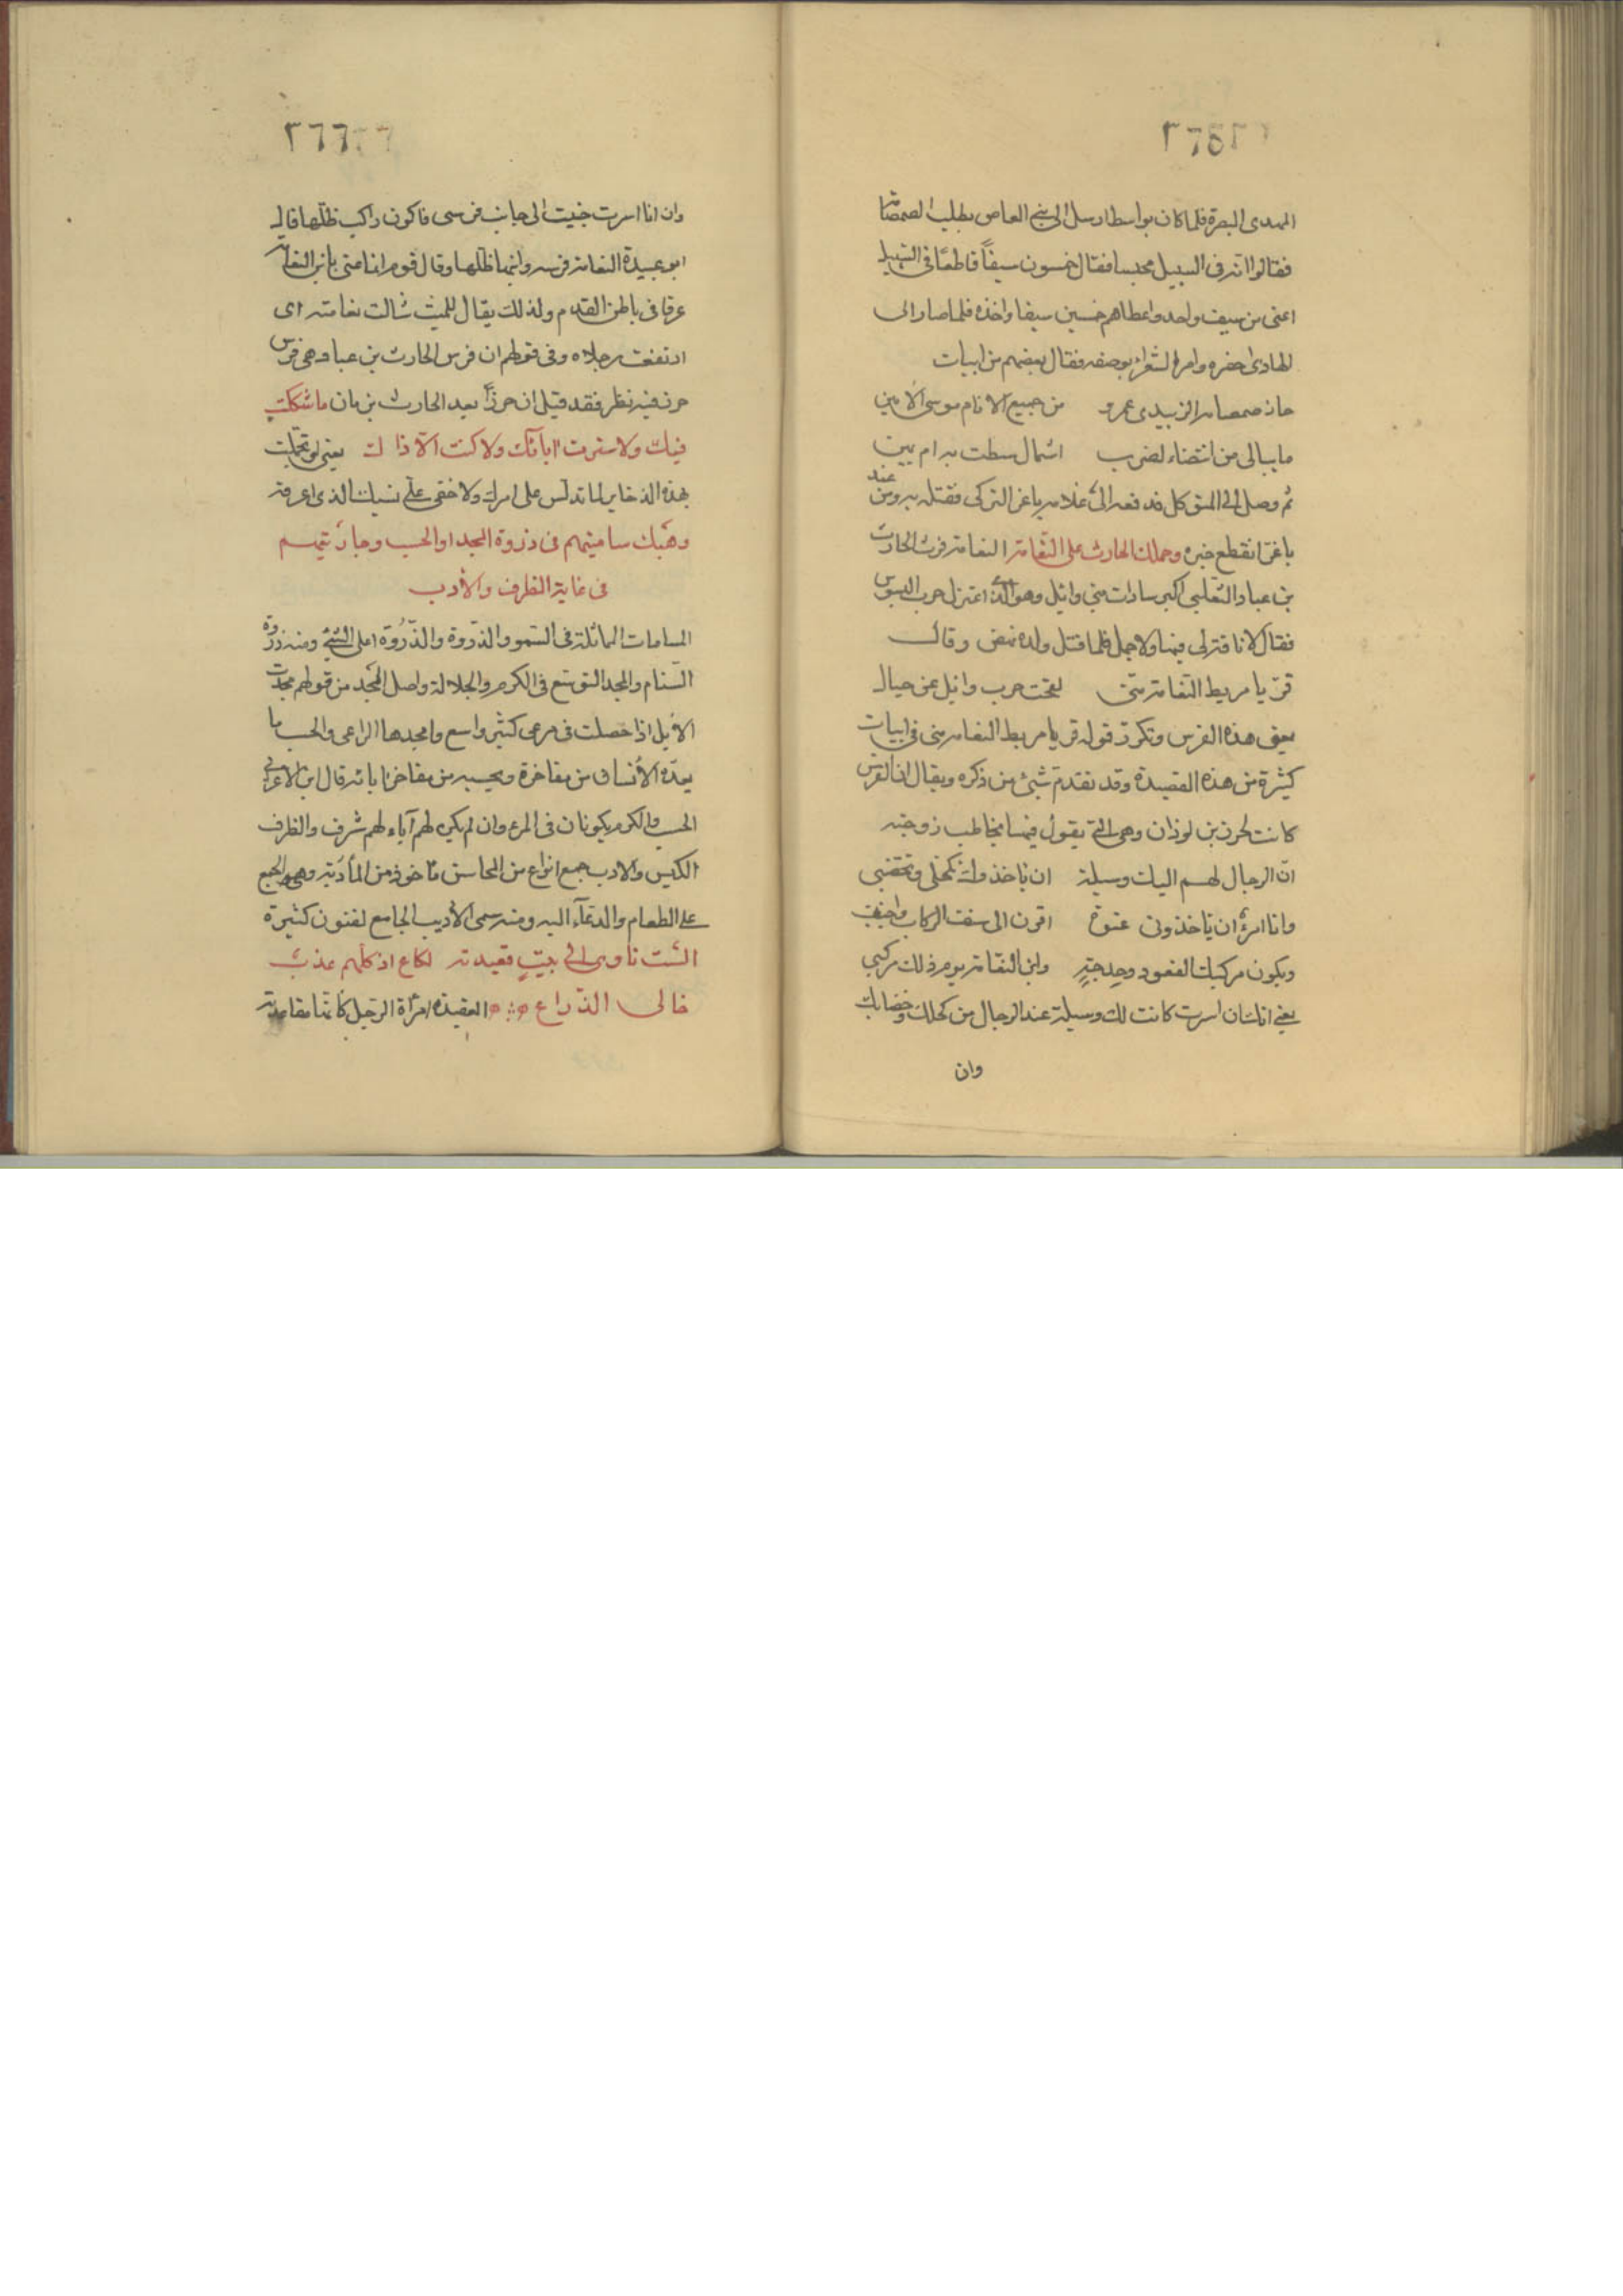 ٢٦٥
المهدى البصرة فلما كان بواسط ارسل الى بنى العاص بطلب الصمصامة
فقالوا انه فى السبيل محبسا فقال خمسون سيفاً قاطعا فى السبيل
اغنى من سيف واحد واعطاهم خمسين سيفا واخذه فلما صار الى
الهادى احضره وامر الشعراء بوصفه فقال بعضهم من ابيات
حاز صمصامه الزبيدى عمرو من جميع الانام موسى الامين
ما يبالى من انتضاه لضرب اشمال سطت به ام يمين
ثم وصل الى المتوكل فدفعه الى غلامه باغر التركى فقتله به ومن عند
باغر انقطع خبره وحملك الحارث على النعامة النعامة فرس الحارث
بن عباد التغلبى اكبر سادات بنى وائل وهو الذى اعتزل حرب البسوس
فقال لا ناقة لى فيها ولا جمل فلما قتل ولده نهض وقال
قربا مربط النعامة منى لقحت حرب وائل عن حيال
يعنى هذه الفرس وتكرر قوله قربا مربط النعامة منى فى ابيات
كثيرة من هذه القصيدة وقد تقدم شئ من ذكره ويقال ان الفرس
كانت لحرز بن لوذان وهى التى يقول فيها يخاطب زوجته
ان الرجال لهم اليك وسيلة ان ياخذوك تكحلى وتخضبى
وانا امرؤ ان ياخذونى عنوة اقرن الى سنف الركاب واجنب
ويكون مركبك القعود وحدجة وابن النعامة يوم ذلك مركبى
يعنى انك ان اسرت كانت لك وسيلة عند الرجال من كحلك وخضابك
وان
٢٦٦
وان انا اسرت جنبت الى جانب فرسى فاكون راكب ظلها قال
ابو عبيدة النعامة فرسه وابنها ظلها وقال قوم انما عنى بابن النعامة
عرقا فى باطن القدم ولذلك يقال للميت شالت نعامته اى
ارتفعت رجلاه وفى قولهم ان فرس الحارث بن عباد هى فرس
حرز فيه نظر فقد قيل ان حرزاً بعد الحارث بزمان ما شككت
فيك ولا سترت اباك ولا كنت الا ذاك يعنى لو تجملت
بهذه الذخاير لما تدلس على امرك ولا خفى على نسبك الذى اعرفه
وهبك ساميتهم فى ذروة المجد والحسب وجاريتهم
فى غاية الظرف والادب
المسامات المماثلة فى السمو والذروة والذُروة اعلى الشئ ومنه ذروة
السنام والمجد التوسع فى الكرم والجلالة واصل المجد من قولهم مجدت
الابل اذا حصلت فى مرعى كثير واسع وامجدها الراعى والحسب ما
يعده الانسان من مفاخره ويحسبه من مفاخر ابائه قال ابن الاعرابى
الحسب والكرم يكونان فى المرء وان لم يكن لهم آباء لهم شرف والظرف
الكيس والادب جمع انواع من المحاسن ماخوذ من المأدبة وهى الجمع
على الطعام والدعاء اليه ومنه سمى الاديب الجامع لفنون كثيرة
الست تاوى الى بيت قعيدته لكاع اذ كلهم عذب
خالى الذراع القعيدة امرأة الرجل كانها مقاعدته